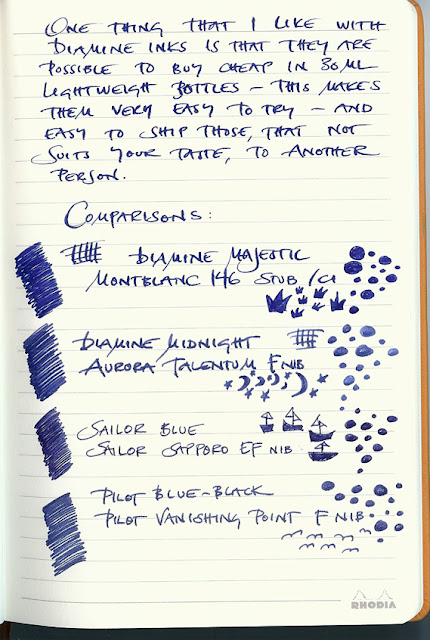 ONE THING THAT I LIKE WITH
DIAMINE INKS IS THAT THEY ARE
POSSIBLE TO BUY CHEAP IN 30 ML
LIGHTWEIGHT BOTTLES – THIS MAKES
THEM VERY EASY TO TRY – AND
EASY TO SHIP THOSE, THAT NOT
SUITS YOUR TASTE, TO ANOTHER
PERSON.
COMPARISONS:
DIAMINE MAJESTIC
MONTBLANC 146 STUB /CI
DIAMINE MIDNIGHT
AURORA TALENTUM F NIB
SAILOR BLUE
SAILOR SAPPORO EF NIB
PILOT BLUE-BLACK
PILOT VANISHING POINT F NIB
RHODIA